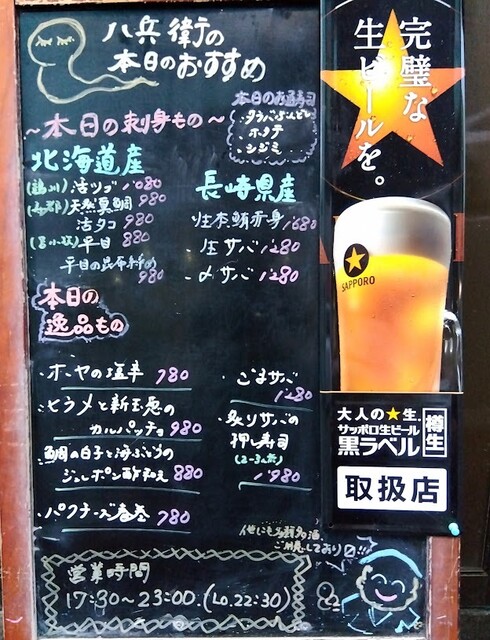 八兵衛の
本日のおすすめ
本日のお通寿司
ホタテ
シジミ
~本日の刺身もの~
北海道産
活ツブ 1080
天然真鯛 980
活タコ 980
平目 880
平目の昆布〆め
980
長崎県産
生本鮪赤身 1680
生サバ 1280
〆サバ 1280
本日の
逸品もの
・ホーヤの塩辛 780
・ヒラメと新玉葱の
カルパッチョ 980
・鯛の白子と海ぶどうの
ジュレポン酢和え 880
・パクチーズ春巻 780
・ごまサバ
1280
・炙りサバの
押し寿司
(2~3人前)
1980
他にも多数お酒
ご用意しております!!
営業時間
17:30~23:00 (Lo.22:30)
完璧な
生ビールを。
SAPPORO
大人の★生。
サッポロ生ビール
黒ラベル
樽生
取扱店